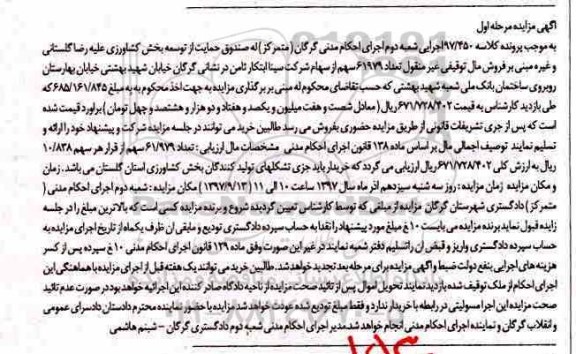 آگهی مزایده مرحله اول
به موجب پرونده کلاسه ۹۷/۴۵۰اجرایی شعبه دوم اجرای احکام مدنی گرگان (متمرکز) له صندوق حمایت از توسعه بخش کشاورزی علیه رضا گلستانی
و غیره مبنی بر فروش مال توقیفی غیر منقول تعداد ۶۱۹۷۹ سهم از سهام شرکت سینا ابتکار ثامن در نشانی گرگان خیابان شهید بهشتی خیابان بهارستان
روبروی ساختمان بانک ملی شعبه شهید بهشتی که حسب تقاضای محکوم له مبنی بر برگذاری مزایده به جهت اخذ محکوم به به مبلغ ۶۸۵/۱۶۱/۸۴۵ که
طی بازدید کارشناس به قیمت ۶۷۱/۷۲۸/۴۰۲ ریال (معادل شصت و هفت میلیون و یکصد و هفتاد و دو هزار و هشتصد و چهل تومان) برآورد قیمت شده
است که پس از جری تشریفات قانونی از طریق مزایده حضوری بفروش می رسد طالبین خرید می توانند در جلسه مزایده شرکت و پیشنهاد خود را ارائه و
تسلیم نمایند توصیف اجمالی مال بر اساس ماده ۱۳۸ قانون اجرای احکام مدنی مشخصات مال ارزیابی : تعداد ۶۱/۹۷۹ سهم از قرار هر سهم ۱۰/۸۳۸
ریال به ارزش کلی ۶۷۱/۷۲۸/۴۰۲ ریال ارزیابی می گردد که خریدار باید جزی تشکلهای تولید کنندگان بخش کشاورزی استان گلستان می باشد. زمان
و مکان مزایده زمان مزایده : روز سه شنبه سیزدهم آذر ماه سال ۱۳۹۷ ساعت ۱۰ الی ۱۱ (۱۳۹۷/۹/۱۳) مکان مزایده : شعبه دوم اجرای احکام مدنی (
متمرکز) دادگستری شهرستان گرگان مزایده از مبلغی که توسط کارشناس تعیین گردیده شروع و برنده مزایده کسی است که بالاترین مبلغ را در جلسه
زایده قبول نماید برنده مزایده می بایست ۱۰٪ مبلغ مورد پیشنهاد را نقدا به حساب سپرده دادگستری تودیع و مابقی آن ظرف یکماه از تاریخ اجرای مزایده به
حساب سپرده دادگستری واریز و قبض آن را تسلیم دفتر شعبه نمایند در غیر این صورت وفق ماده ۱۲۹ قانون اجرای احکام مدنی ۱۰٪ سپرده پس از کسر
هزینه های اجرایی بنفع دولت ضبط و آگهی مزایده برای مرحله بعد تجدید خواهد شد. طالبین خرید می توانند یک هفته قبل از اجرای مزایده با هماهنگی این
اجرای احکام از ملک توقیف شده بازدید نمایند تحویل اموال پس از تائید صحت مزایده از ناحیه دادگاه صادر کننده این اجرائیه خواهد بود در صورت عدم تائید
صحت مزایده این اجرا مسولیتی در رابطه با خریدار ندارد و فقط مبلغ تودیع شده عودت خواهد شد مزایده با حضور نماینده محترم دادستان دادسرای عمومی
و انقلاب گرگان و نماینده اجرای احکام مدنی انجام خواهد شد مدیر اجرای احکام مدنی شعبه دوم دادگستری گرگان – شبنم هاشمی